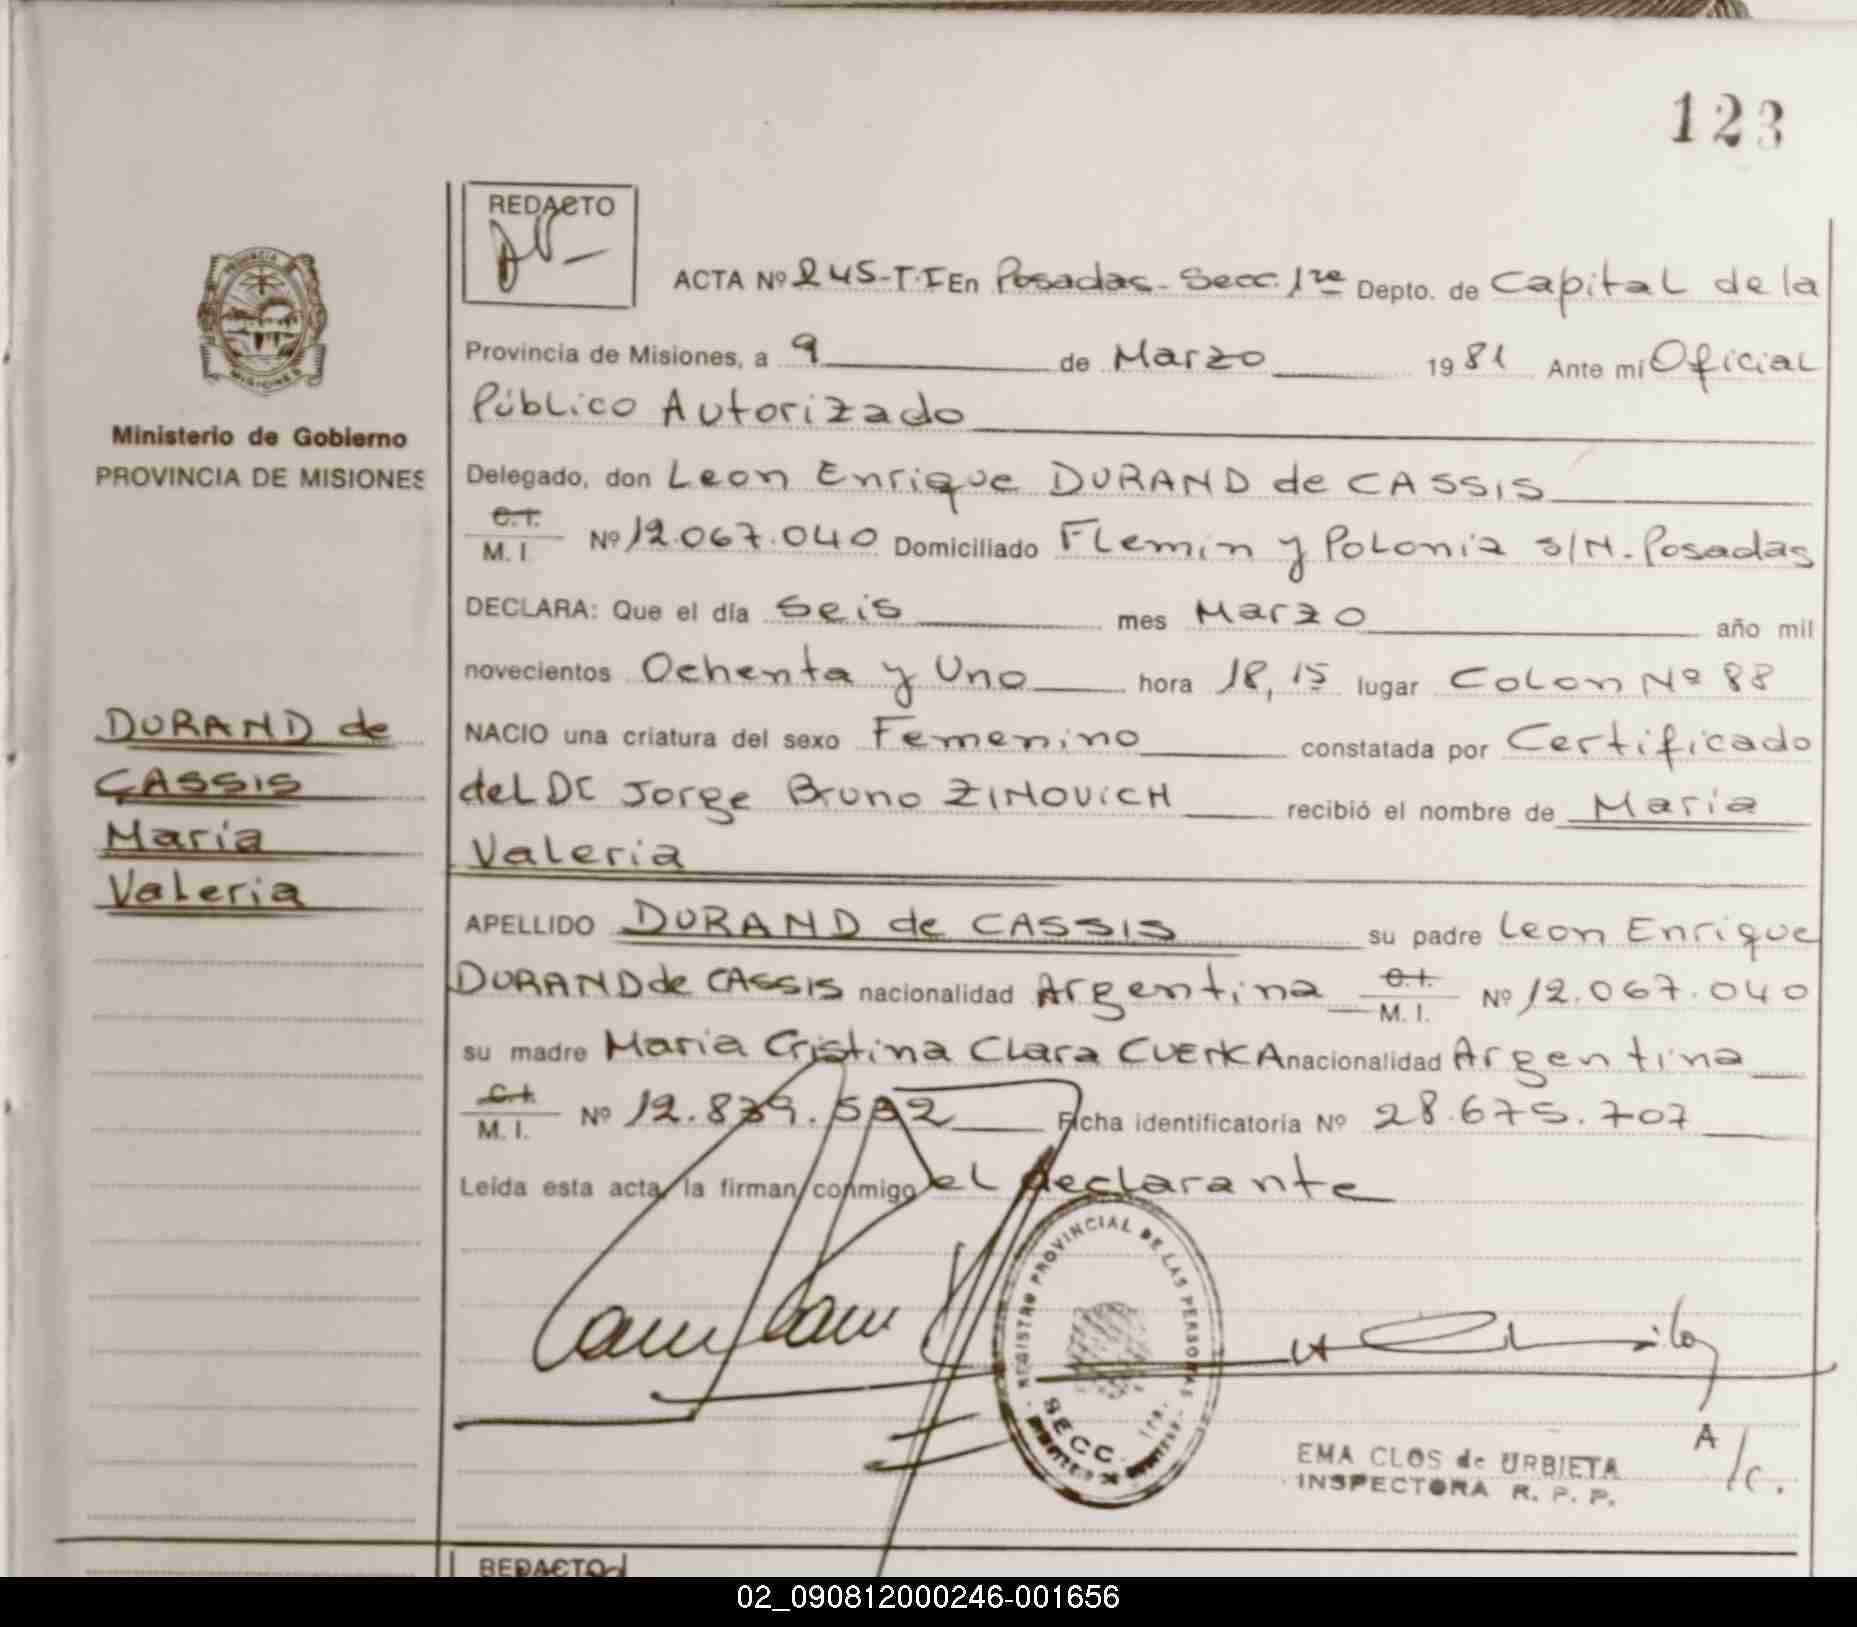 123
REDACTO
ACTA Nº 245-T.I En Posadas - Secc. 1ra Depto. de Capital de la
Provincia de Misiones, a 9 de Marzo 1981 Ante mí Oficial
Público Autorizado
Ministerio de Gobierno
PROVINCIA DE MISIONES
Delegado, don Leon Enrique DURAND de CASSIS
C.I.
M. I. Nº 12.067.040 Domiciliado Flemin y Polonia s/N. Posadas
DECLARA: Que el día Seis mes Marzo año mil
novecientos Ochenta y Uno hora 18,15 lugar Colon Nº 88
DURAND de
CASSIS
Maria
Valeria
NACIO una criatura del sexo Femenino constatada por Certificado
del Dr Jorge Bruno ZINOVICH recibió el nombre de Maria
Valeria
APELLIDO DURAND de CASSIS su padre Leon Enrique
DURAND de CASSIS nacionalidad Argentina C.I. M. I. Nº 12.067.040
su madre Maria Cristina Clara CUENKA nacionalidad Argentina
C.I.
M. I. Nº 12.839.532 Ficha identificatoria Nº 28.675.707
Leída esta acta, la firman conmigo el declarante
REGISTRO PROVINCIAL DE LAS PERSONAS
SECC. 1ra.
A/c.
EMA CLOS de URBIETA
INSPECTORA R. P. P.
REDACTO
02_090812000246-001656